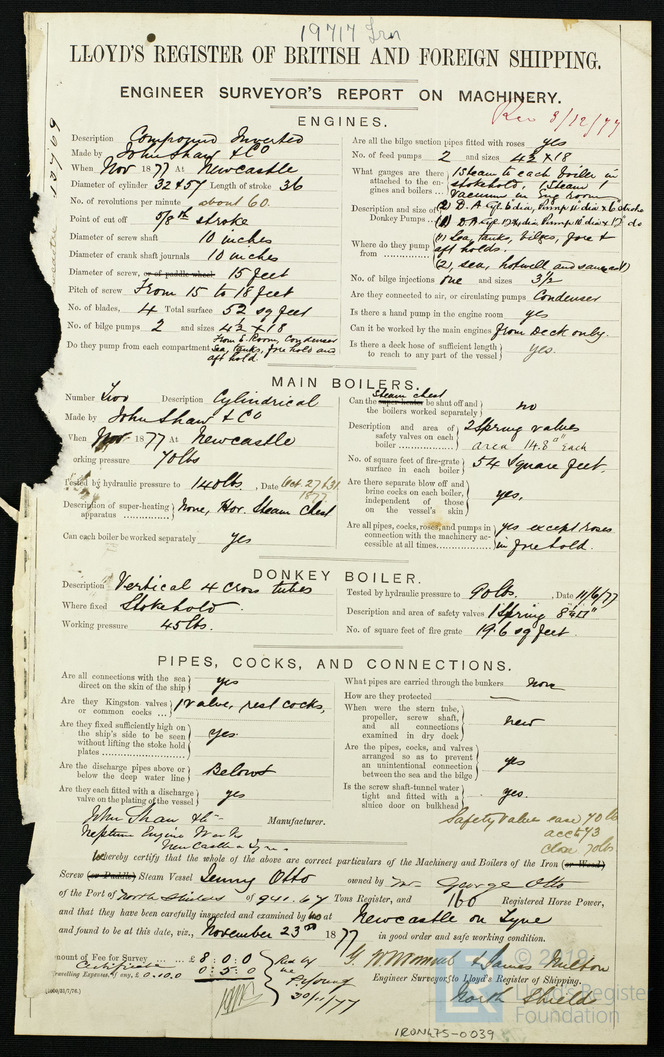 19717 Iron
LLOYD'S REGISTER OF BRITISH AND FOREIGN SHIPPING.
ENGINEER SURVEYOR'S REPORT ON MACHINERY.
Rec 3/12/77
ENGINES.
Description Compound Inverted
Made by John Shaw & Co
When Nov 1877 At Newcastle
Diameter of cylinder 32 & 57 Length of stroke 36
No. of revolutions per minute about 60.
Point of cut off 5/8th stroke
Diameter of screw shaft 10 inches
Diameter of crank shaft journals 10 inches
Diameter of screw, or of paddle wheel 15 feet
Pitch of screw From 15 to 18 feet
No. of blades, 4 Total surface 52 sq feet
No. of bilge pumps 2 and sizes 4½ × 18
Do they pump from each compartment From E. Room, Condenser
Sea, tanks, fore hold and
aft hold
Are all the bilge suction pipes fitted with roses yes
No. of feed pumps 2 and sizes 4½ × 18
What gauges are there attached to the engines and boilers 1 Steam to each boiler in
stokehold, 1 Steam 1
Vacuum in Eng room
Description and size of Donkey Pumps (2) D.A Cyl 6 dia, Pump 4 dia × 6 stroke
(1) D.A Cyl dia, Pump dia × do
Where do they pump from (1) Sea, tanks, bilges, fore &
aft holds.
(2), sea, hotwell and
No. of bilge injections one and sizes 3½
Are they connected to air, or circulating pumps Condenser
Is there a hand pump in the engine room yes
Can it be worked by the main engines from Deck only.
Is there a deck hose of sufficient length to reach to any part of the vessel yes.
MAIN BOILERS.
Number Two Description Cylindrical
Made by John Shaw & Co
When Nov 1877 At Newcastle
orking pressure 70 lbs
Tested by hydraulic pressure to 140 lbs. , Date Oct. 27 & 31
1877
Description of super-heating apparatus None, Hor. Steam Chest
Can each boiler be worked separately yes
Can the super-heater Steam chest be shut off and the boilers worked separately no
Description and area of safety valves on each boiler 2 Spring valves
area 14.8□" each
No. of square feet of fire-grate surface in each boiler 54 Square feet.
Are there separate blow off and brine cocks on each boiler, independent of those on the vessel's skin yes.
Are all pipes, cocks, roses, and pumps in connection with the machinery accessible at all times yes except roses
in fore hold.
DONKEY BOILER.
Description Vertical 4 cross tubes
Where fixed Stokehold
Working pressure 45 lbs.
Tested by hydraulic pressure to 90 lbs. , Date 11/6/77
Description and area of safety valves 1 Spring
No. of square feet of fire grate 19.6 sq feet.
PIPES, COCKS, AND CONNECTIONS.
Are all connections with the sea direct on the skin of the ship yes
Are they Kingston valves or common cocks 1 valve, rest cocks,
Are they fixed sufficiently high on the ship's side to be seen without lifting the stoke hold plates yes.
Are the discharge pipes above or below the deep water line Below
Are they each fitted with a discharge valve on the plating of the vessel yes
What pipes are carried through the bunkers None
How are they protected —
When were the stern tube, propeller, screw shaft, and all connections examined in dry dock new
Are the pipes, cocks, and valves arranged so as to prevent an unintentional connection between the sea and the bilge yes
Is the screw shaft-tunnel water tight and fitted with a sluice door on bulkhead yes.
John Shaw & Co Manufacturer.
Neptune Engine Works
Newcastle on Tyne
Safety valve ease 70 lb
acc 73
close 70 lb
We hereby certify that the whole of the above are correct particulars of the Machinery and Boilers of the Iron (or Wood)
Screw (or Paddle) Steam Vessel Jenny Otto owned by Mr George Otto
of the Port of North Shields of 941.67 Tons Register, and 160 Registered Horse Power,
and that they have been carefully inspected and examined by us at Newcastle on Tyne
and found to be at this date, viz., November 23rd 1877 in good order and safe working condition.
mount of Fee for Survey ... ... £ 8:0:0
Certificate 0:5:0
Travelling Expenses, if any, £ 0.10.0
30/11/77
James Milton
Engineer Surveyors to Lloyd's Register of Shipping.
North Shields
IRON475-0039
© 2019
Lloyd's Register
Foundation